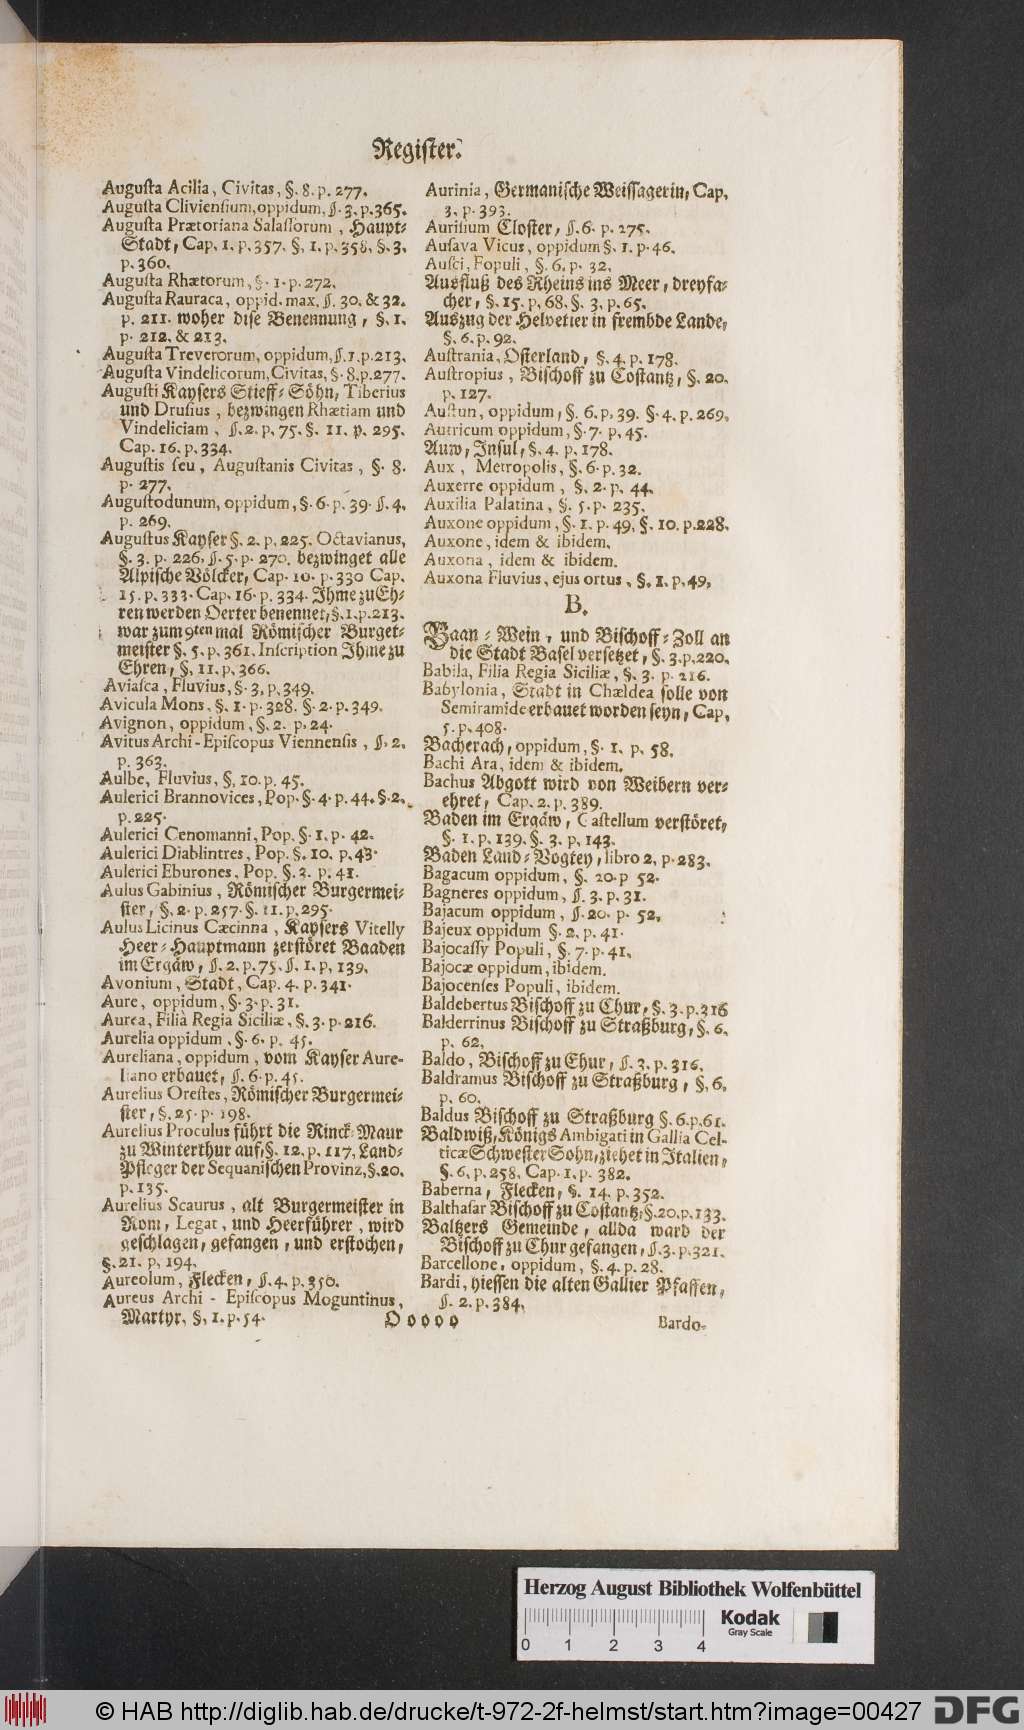 Register.
Augusta Acilia, Civitas, §. 8. p. 277.
Augusta Cliviensium, oppidum, §. 3. p. 365.
Augusta Prætoriana Salassorum, Haupt-
Stadt, Cap. 1. p. 357. §. 1. p. 358. §. 3.
p. 360.
Augusta Rhætorum, §. 1. p. 272.
Augusta Rauraca, oppid. max. §. 30. & 32.
p. 211. woher dise Benennung, §. 1.
p. 212. & 213.
Augusta Treverorum, oppidum, §. 1. p. 213.
Augusta Vindelicorum, Civitas, §. 8. p. 277.
Augusti Kaysers Stieff-Söhn, Tiberius
und Drusius, bezwingen Rhætiam und
Vindeliciam, §. 2. p. 75. §. 11. p. 295.
Cap. 16. p. 334.
Augustis seu, Augustanis Civitas, §. 8.
p. 277.
Augustodunum, oppidum, §. 6. p. 39. §. 4.
p. 269.
Augustus Kayser §. 2. p. 225. Octavianus,
§. 3. p. 226. §. 5. p. 270. bezwinget alle
Alpische Völcker, Cap. 10. p. 330 Cap.
15. p. 333. Cap. 16. p. 334. Ihme zu Eh-
ren werden Oerter benennet, §. 1. p. 213.
war zum 9ten mal Römischer Burger-
meister §. 5. p. 361. Inscription Ihme zu
Ehren, §. 11. p. 366.
Aviasca, Fluvius, §. 3. p. 349.
Avicula Mons, §. 1. p. 328. §. 2. p. 349.
Avignon, oppidum, §. 2. p. 24.
Avitus Archi-Episcopus Viennensis, §. 2.
p. 363.
Aulbe, Fluvius, §. 10. p. 45.
Aulerici Brannovices, Pop. §. 4. p. 44. §. 2.
p. 225.
Aulerici Cenomanni, Pop. §. 1. p. 42.
Aulerici Diablintres, Pop. §. 10. p. 43.
Aulerici Eburones, Pop. §. 3. p. 41.
Aulus Gabinius, Römischer Burgermei-
ster, §. 2. p. 257. §. 11. p. 295.
Aulus Licinus Cæcinna, Kaysers Vitelly
Heer-Hauptmann zerstöret Baaden
im Ergäw, §. 2. p. 75. §. 1. p. 139.
Avonium, Stadt, Cap. 4. p. 341.
Aure, oppidum, §. 3. p. 31.
Aurea, Filià Regia Siciliæ, §. 3. p. 216.
Aurelia oppidum, §. 6. p. 45.
Aureliana, oppidum, vom Kayser Aure-
liano erbauet, §. 6. p. 45.
Aurelius Orestes, Römischer Burgermei-
ster, §. 25. p. 198.
Aurelius Proculus führt die Rinck-Maur
zu Winterthur auf, §. 12. p. 117. Land-
Pfleger der Sequanischen Provinz, §. 20.
p. 135.
Aurelius Scaurus, alt Burgermeister in
Rom, Legat, und Heerführer, wird
geschlagen, gefangen, und erstochen,
§. 21. p. 194.
Aureolum, Flecken, §. 4. p. 350.
Aureus Archi-Episcopus Moguntinus,
Martyr, §. 1. p. 54.
Aurinia, Germanische Weissagerin, Cap.
3. p. 393.
Aurisium Closter, §. 6. p. 275.
Ausava Vicus, oppidum §. 1. p. 46.
Ausci, Populi, §. 6. p. 32.
Ausfluß des Rheins ins Meer, dreyfa-
cher, §. 15. p. 68. §. 3. p. 65.
Auszug der Helvetier in frembde Lande,
§. 6. p. 92.
Austrania, Osterland, §. 4. p. 178.
Austropius, Bischoff zu Costantz, §. 20.
p. 127.
Austun, oppidum, §. 6. p. 39. §. 4. p. 269.
Autricum oppidum, §. 7. p. 45.
Auw, Insul, §. 4. p. 178.
Aux, Metropolis, §. 6. p. 32.
Auxerre oppidum, §. 2. p. 44.
Auxilia Palatina, §. 5. p. 235.
Auxone oppidum, §. 1. p. 49. §. 10. p. 228.
Auxone, idem & ibidem.
Auxona, idem & ibidem.
Auxona Fluvius, ejus ortus, §. 1. p. 49.
B.
Baan-Wein, und Bischoff-Zoll an
die Stadt Basel versetzet, §. 3. p. 220.
Babila, Filia Regia Siciliæ, §. 3. p. 216.
Babylonia, Stadt in Chældea solle von
Semiramide erbauet worden seyn, Cap.
5. p. 408.
Bacherach, oppidum, §. 1. p. 58.
Bachi Ara, idem & ibidem.
Bachus Abgott wird von Weibern ver-
ehret, Cap. 2. p. 389.
Baden im Ergäw, Castellum verstöret,
§. 1. p. 139. §. 3. p. 143.
Baden Land-Vogtey, libro 2. p. 283.
Bagacum oppidum, §. 20. p 52.
Bagneres oppidum, §. 3. p. 31.
Bajacum oppidum, §. 20. p. 52.
Bajeux oppidum §. 2. p. 41.
Bajocassy Populi, §. 7. p. 41.
Bajocæ oppidum, ibidem.
Bajocenses Populi, ibidem.
Baldebertus Bischoff zu Chur, §. 3. p. 316
Balderrinus Bischoff zu Straßburg, §. 6.
p. 62.
Baldo, Bischoff zu Chur, §. 3. p. 316.
Baldramus Bischoff zu Straßburg, §. 6.
p. 60.
Baldus Bischoff zu Straßburg §. 6. p. 61.
Baldwiß, Königs Ambigati in Gallia Cel-
ticæ Schwester Sohn, ziehet in Italien,
§. 6. p. 258. Cap. 1. p. 382.
Baberna, Flecken, §. 14. p. 352.
Balthasar Bischoff zu Costantz, §. 20. p. 133.
Baltzers Gemeinde, allda ward der
Bischoff zu Chur gefangen, §. 3. p. 321.
Barcellone, oppidum, §. 4. p. 28.
Bardi, hiessen die alten Gallier Pfaffen,
§. 2. p. 384.
O o o o o
Bardo-
Herzog August Bibliothek Wolfenbüttel
0 1 2 3 4
Kodak
Gray Scale
© HAB http://diglib.hab.de/drucke/t-972-2f-helmst/start.htm?image=00427
DFG